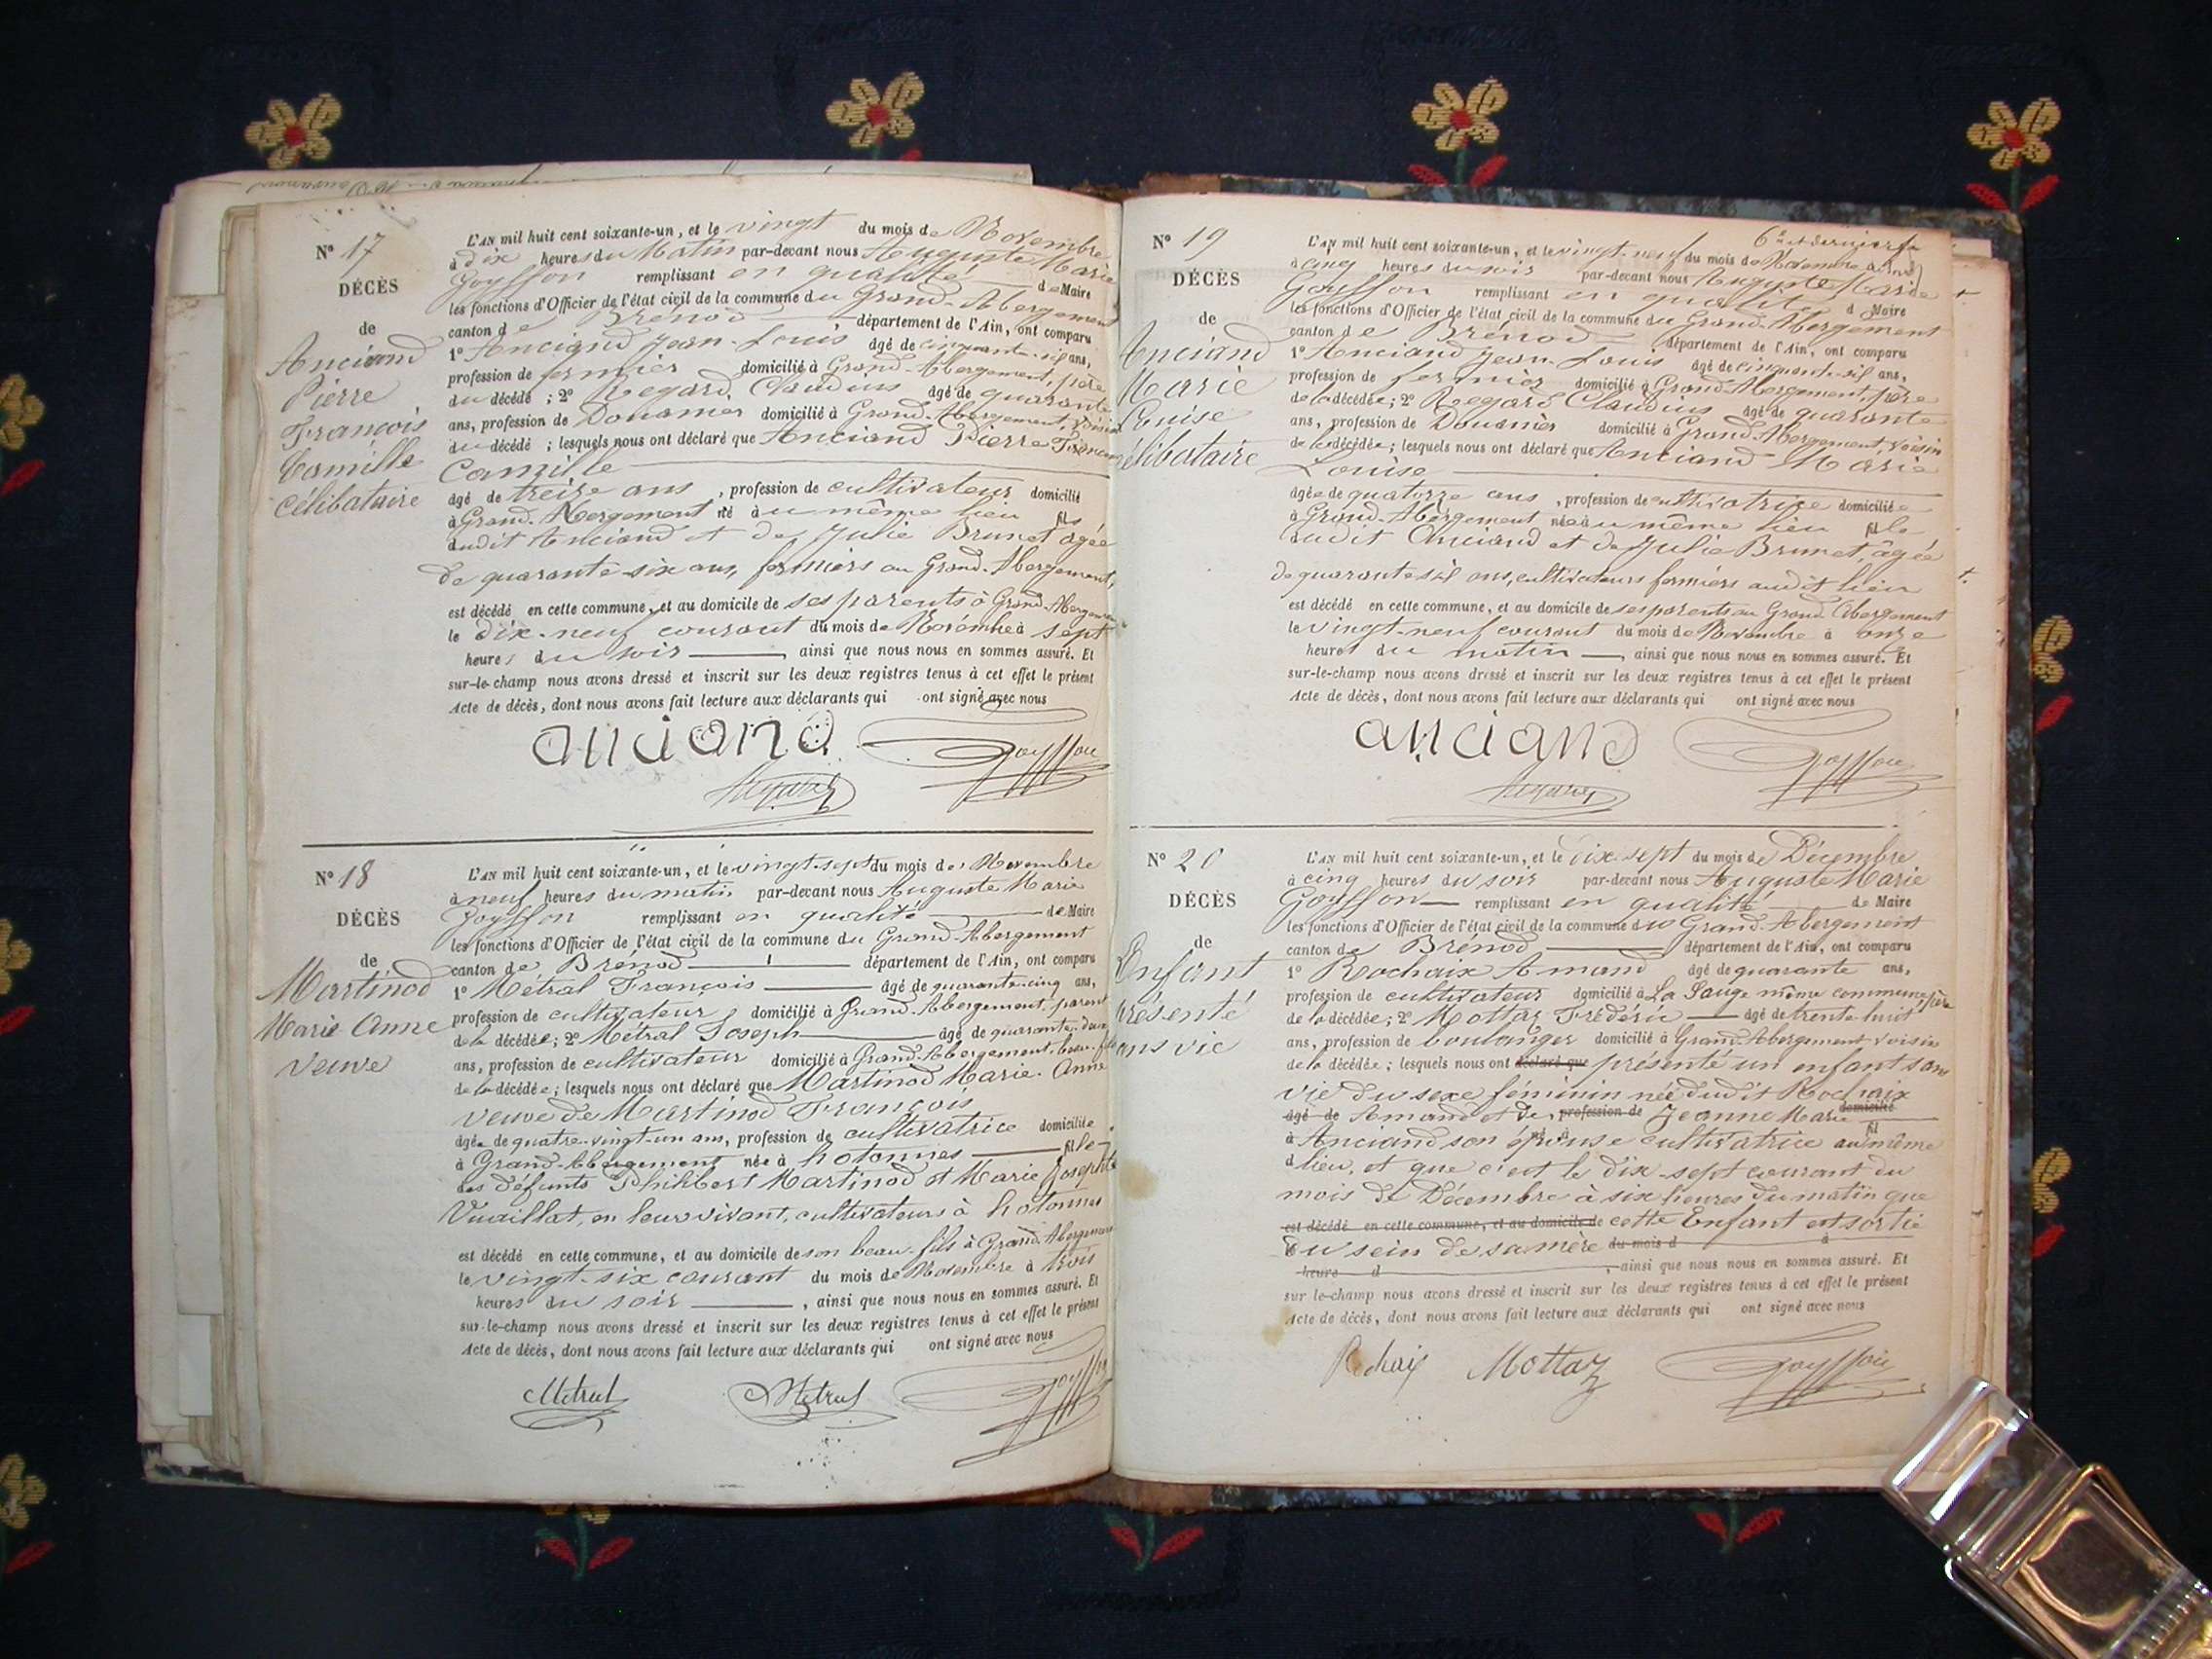 N° 17
DÉCÈS
de
Anciand
Pierre
François
Camille
célibataire
L'AN mil huit cent soixante-un, et le vingt du mois de Novembre
à dix heures du Matin par-devant nous Auguste Marie
Goyffon remplissant en qualité de Maire
les fonctions d'Officier de l'état civil de la commune du Grand-Abergement
canton de Brénod département de l'Ain, ont comparu
1° Anciand Jean-Louis âgé de cinquante-six ans,
profession de fermier domicilié à Grand-Abergement, père
du décédé ; 2° Regard Claudius âgé de quarante
ans, profession de Douanier domicilié à Grand-Abergement, voisin
du décédé ; lesquels nous ont déclaré que Anciand Pierre François
Camille
âgé de treize ans, profession de cultivateur domicilié
à Grand-Abergement né au même lieu fils
dudit Anciand et de Julie Brunet âgée
de quarante-six ans, fermiers au Grand-Abergement,
est décédé en cette commune, et au domicile de ses parents à Grand-Abergement
le dix-neuf courant du mois de Novembre à sept
heures du soir ainsi que nous nous en sommes assuré. Et
sur-le-champ nous avons dressé et inscrit sur les deux registres tenus à cet effet le présent
Acte de décès, dont nous avons fait lecture aux déclarants qui ont signé avec nous
anciand Goyffon
Regard
N° 18
DÉCÈS
de
Martinod
Marie Anne
veuve
L'AN mil huit cent soixante-un, et le vingt-sept du mois de Novembre
à neuf heures du matin par-devant nous Auguste Marie
Goyffon remplissant en qualité de Maire
les fonctions d'Officier de l'état civil de la commune du Grand-Abergement
canton de Brénod département de l'Ain, ont comparu
1° Métral François âgé de quarante-cinq ans,
profession de cultivateur domicilié à Grand-Abergement, parent
de la décédée ; 2° Métral Joseph âgé de quarante-deux
ans, profession de cultivateur domicilié à Grand-Abergement, beau-fils
de la décédée ; lesquels nous ont déclaré que Martinod Marie-Anne
veuve de Martinod François
âgée de quatre-vingt-un ans, profession de cultivatrice domiciliée
à Grand-Abergement née à hotonnes fille
des défunts Philibert Martinod et Marie Josephte
Vuaillat, en leur vivant, cultivateurs à hotonnes
est décédé en cette commune, et au domicile de son beau-fils à Grand-Abergement
le vingt-six courant du mois de Novembre à trois
heures du soir, ainsi que nous nous en sommes assuré. Et
sur-le-champ nous avons dressé et inscrit sur les deux registres tenus à cet effet le présent
Acte de décès, dont nous avons fait lecture aux déclarants qui ont signé avec nous
Métral Métral Goyffon
N° 19
DÉCÈS
de
Anciand
Marie
Louise
célibataire
6e et dernier
L'AN mil huit cent soixante-un, et le vingt-neuf du mois de Novembre
à cinq heures du soir par-devant nous Auguste Marie
Goyffon remplissant en qualité d Maire
les fonctions d'Officier de l'état civil de la commune du Grand-Abergement
canton de Brénod département de l'Ain, ont comparu
1° Anciand Jean-Louis âgé de cinquante-six ans,
profession de fermier domicilié à Grand-Abergement, père
de la décédée ; 2° Regard Claudius âgé de quarante
ans, profession de Douanier domicilié à Grand-Abergement, voisin
de la décédée ; lesquels nous ont déclaré que Anciand Marie
Louise
âgée de quatorze ans, profession de cultivatrice domiciliée
à Grand-Abergement née au même lieu fille
dudit Anciand et de Julie Brunet, âgée
de quarante six ans, cultivateurs fermiers audit lieu
est décédé en cette commune, et au domicile de ses parents au Grand Abergement
le vingt-neuf courant du mois de Novembre à onze
heures du matin, ainsi que nous nous en sommes assuré. Et
sur-le-champ nous avons dressé et inscrit sur les deux registres tenus à cet effet le présent
Acte de décès, dont nous avons fait lecture aux déclarants qui ont signé avec nous
anciand Goyffon
Regard
N° 20
DÉCÈS
de
Enfant
présenté
sans vie
L'AN mil huit cent soixante-un, et le dix-sept du mois de Décembre
à cinq heures du soir par-devant nous Auguste Marie
Goyffon remplissant en qualité de Maire
les fonctions d'Officier de l'état civil de la commune du Grand-Abergement
canton de Brénod département de l'Ain, ont comparu
1° Rochaix Amand âgé de quarante ans,
profession de cultivateur domicilié à La Sauge même commune, père
de la décédée ; 2° Mottaz Frédéric âgé de trente-huit
ans, profession de boulanger domicilié à Grand-Abergement voisin
de la décédée ; lesquels nous ont déclaré que présenté un enfant sans
vie du sexe féminin née dudit Rochaix
âgé de Amand et de profession de Jeanne Marie domicilié
à Anciand son épouse cultivatrice au même fil
d lieu, et que c'est le dix-sept courant du
mois de Décembre à six heures du matin que
est décédé en cette commune, et au domicile de cette Enfant est sortie
du sein de sa mère du mois d à
heure d, ainsi que nous nous en sommes assuré. Et
sur-le-champ nous avons dressé et inscrit sur les deux registres tenus à cet effet le présent
Acte de décès, dont nous avons fait lecture aux déclarants qui ont signé avec nous
Rochaix Mottaz Goyffon